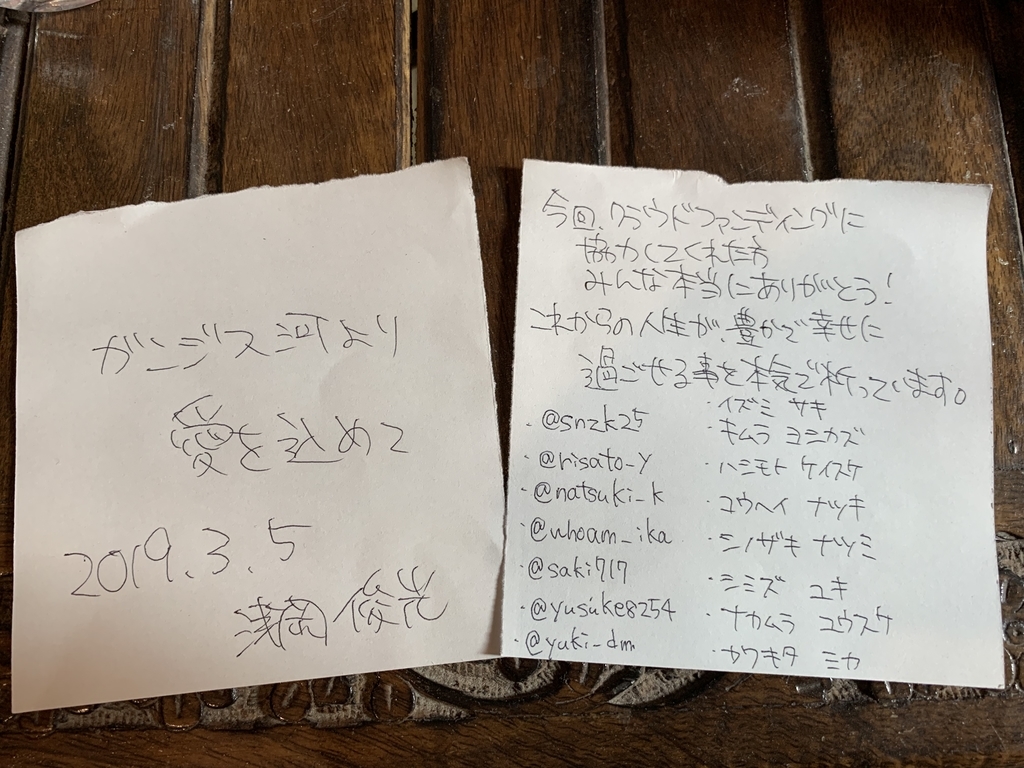 ガンジス河より
愛を込めて
2019.3.5
浅岡 俊光
今回、クラウドファンディングに
協力してくれた方
みんな本当にありがとう!
これからの人生が、豊かで幸せに
過ごせる事を本気で祈っています。
・@snzk25
・@risato_y
・@natsuki_k
・@whoam_ika
・@saki717
・@yusuke8254
・@yuki_dm
・イズミ サキ
・キムラ ヨシカズ
・ハシモト ケイスケ
・ユウヘイ ナツキ
・シノザキ ナツミ
・シミズ ユキ
・ナカムラ ユウスケ
・カワキタ ミカ